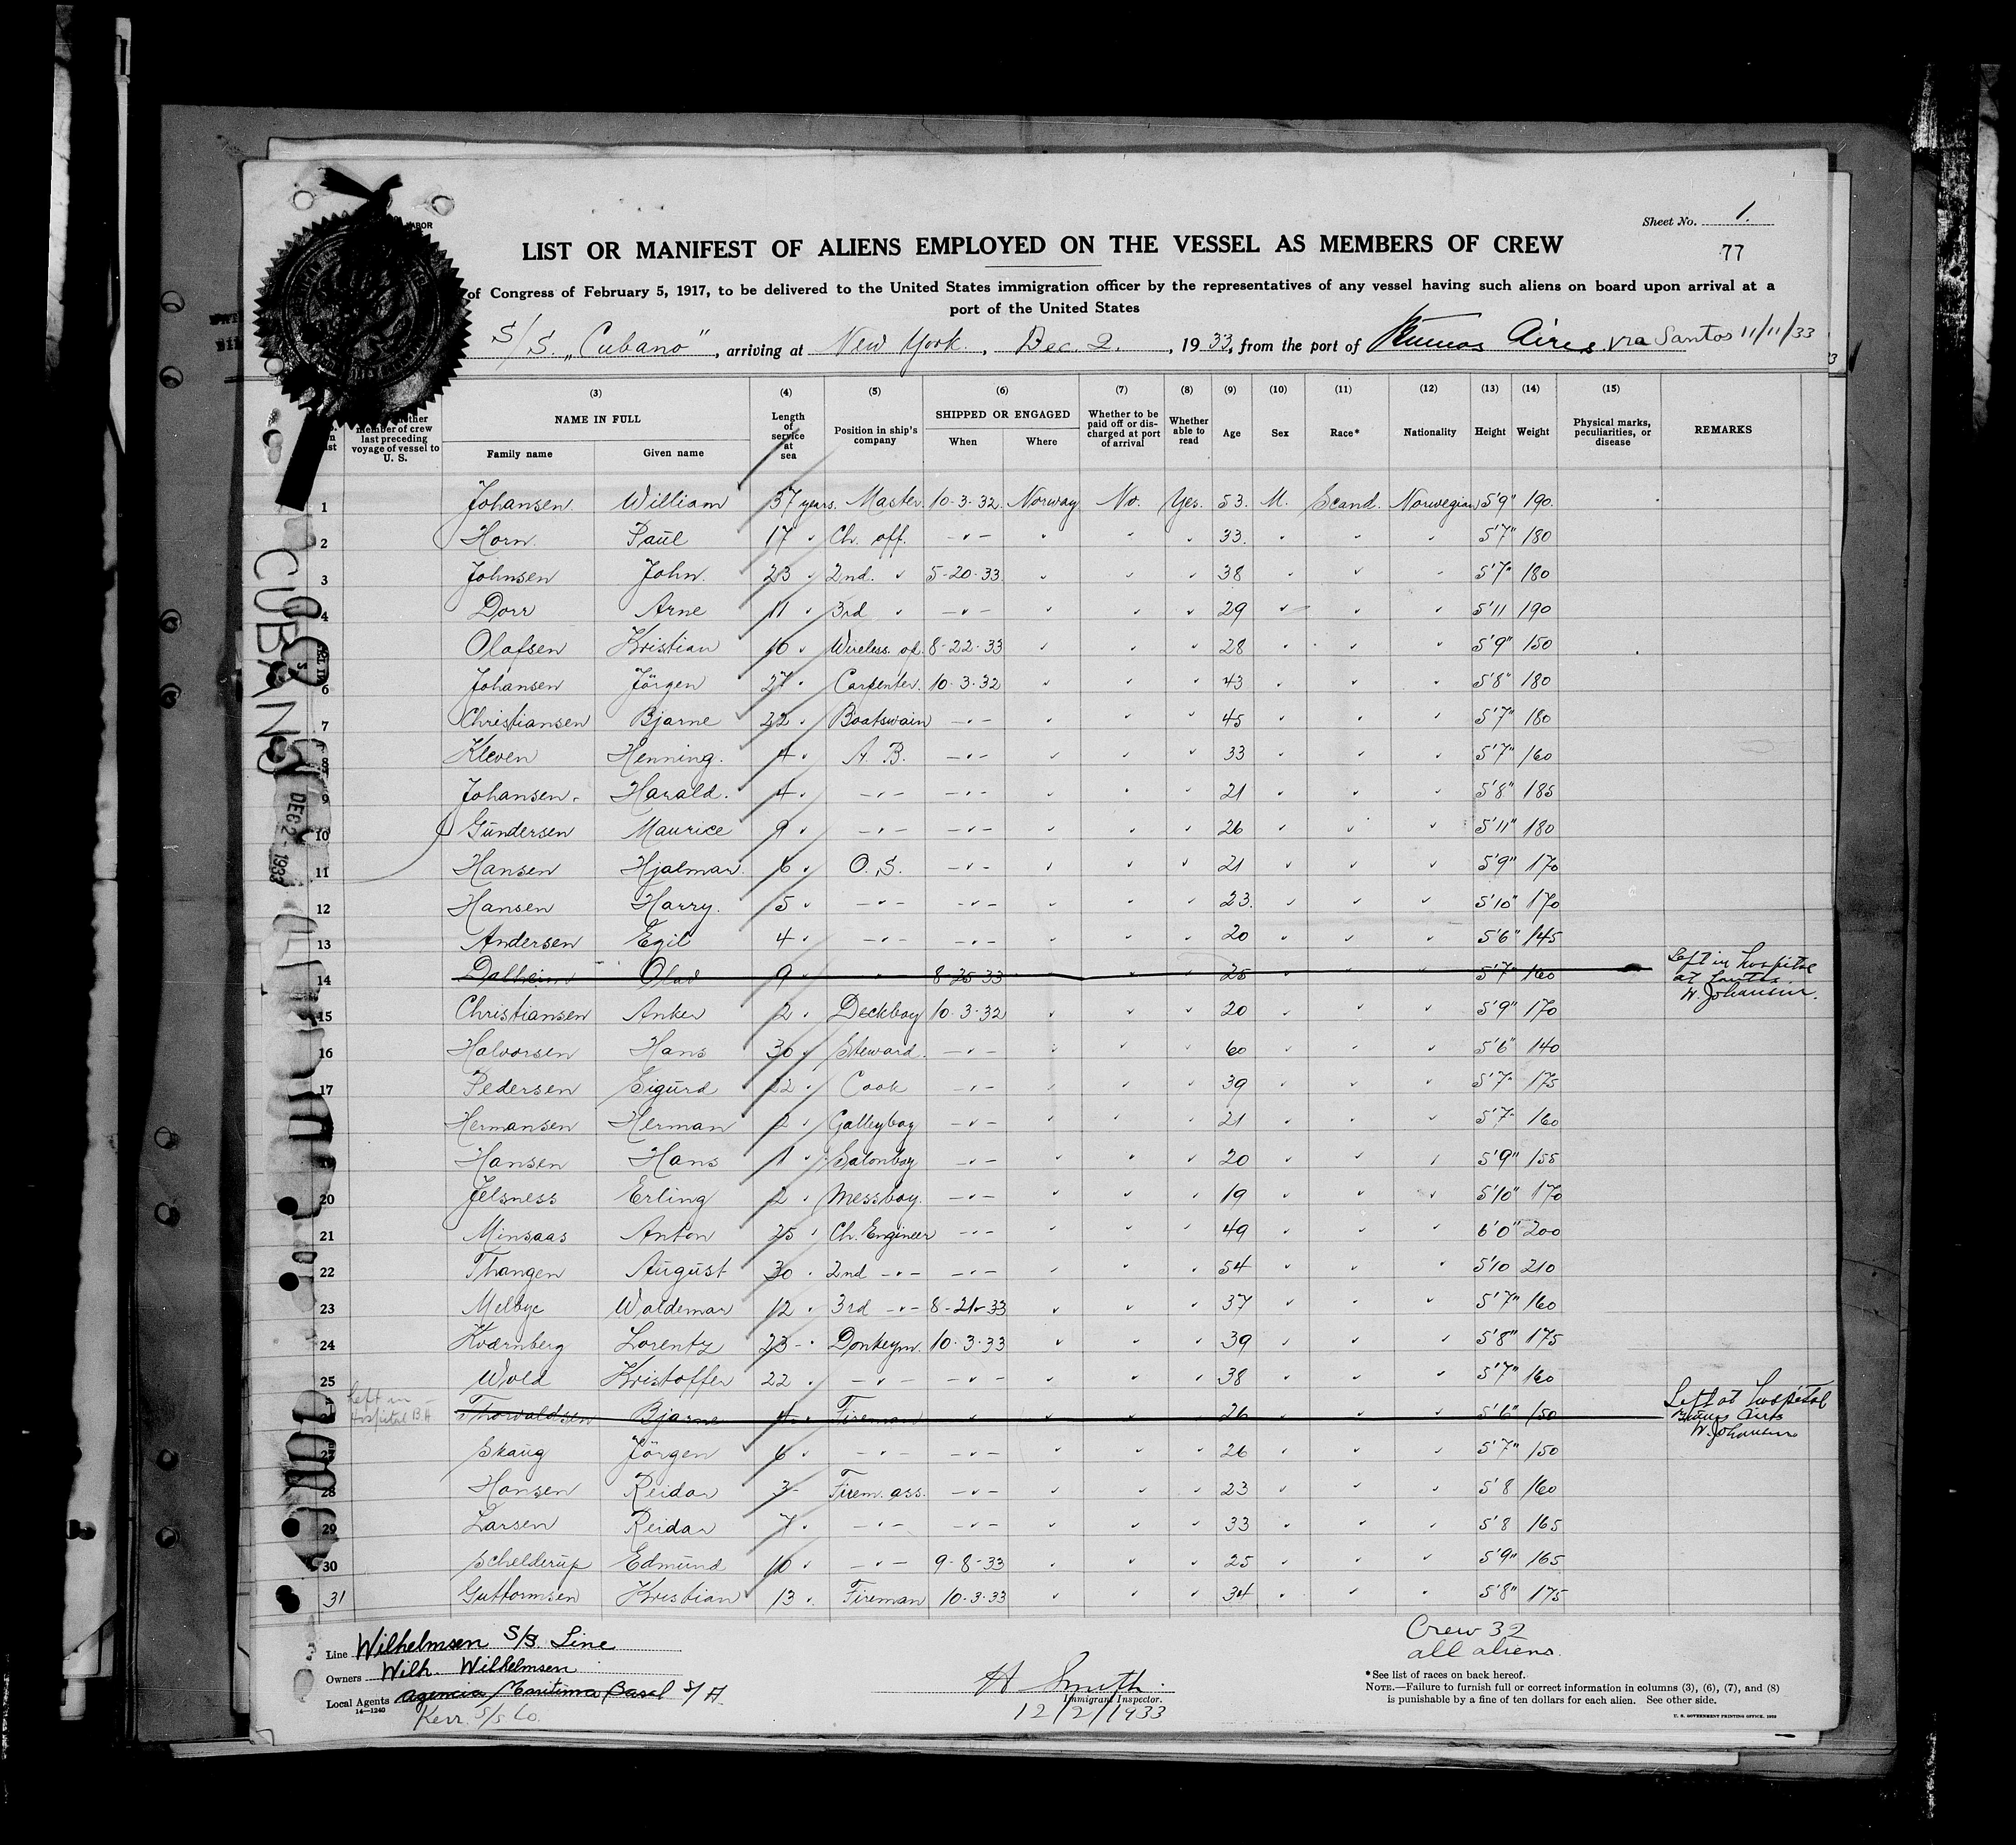 Sheet No. 1.
77
LABOR
LIST OR MANIFEST OF ALIENS EMPLOYED ON THE VESSEL AS MEMBERS OF CREW
of Congress of February 5, 1917, to be delivered to the United States immigration officer by the representatives of any vessel having such aliens on board upon arrival at a
port of the United States
S/S. „Cubano", arriving at New York., Dec. 2., 1933, from the port of Buenos Aires via Santos 11/11/33
(3) (4) (5) (6) (7) (8) (9) (10) (11) (12) (13) (14) (15)
member of crew last preceding voyage of vessel to U. S. NAME IN FULL Family name Given name Length of service at sea Position in ship's company SHIPPED OR ENGAGED When Where Whether to be paid off or discharged at port of arrival Whether able to read Age Sex Race* Nationality Height Weight Physical marks, peculiarities, or disease REMARKS
1 Johansen William 37 years. Master 10-3-32 Norway No. Yes. 53. M. Scand. Norwegian 5'9" 190.
2 Horn Paul 17 " Ch. off. -"- " " " 33. " " " 5'7" 180
3 Johnsen John. 23 " 2nd. " 5-20-33 " " " 38 " " " 5'7" 180
4 Dorr Arne 11 " 3rd " -"- " " " 29 " " " 5'11 190
Olafsen Kristian 10 " Wireless op. 8-22-33 " " " 28 " " " 5'9" 150
6 Johansen Jörgen 27 " Carpenter. 10-3-32 " " " 43 " " " 5'8" 180
7 Christiansen Bjarne 22 " Boatswain -"- " " " 45 " " " 5'7" 180
8 Kleven Henning. 4 " A. B. -"- " " " 33 " " " 5'7" 160
9 Johansen. Harald. 4 " -"- -"- " " " 21 " " " 5'8" 185
10 Gundersen Maurice 9 " -"- -"- " " " 26 " " " 5'11" 180
11 Hansen Hjalmar. 6 " O. S. -"- " " " 21 " " " 5'9" 170
12 Hansen Harry. 5 " -"- -"- " " " 23. " " " 5'10" 170
13 Andersen Egil 4 " -"- -"- " " " 20 " " " 5'6" 145
14 Dalheim Olav 9 " " 8-25-33 " " " 25 " " " 5'7" 160 Left in hospital
at Santos
W. Johansen.
15 Christiansen Anker 2 " Deckboy 10-3-32 " " " 20 " " " 5'9" 170
16 Halvorsen Hans 30 " Steward. -"- " " " 60 " " " 5'6" 140
17 Pedersen Sigurd 22 " Cook -"- " " " 39 " " " 5'7" 175
Hermansen Herman 2 " Galleyboy -"- " " " 21 " " " 5'7" 160
19 Hansen Hans 1 " Salonboy -"- " " " 20 " " " 5'9" 155
20 Jelsness Erling 2 " Messboy. -"- " " " 19 " " " 5'10" 170
21 Minsaas Anton 25 " Ch. Engineer -"- " " " 49 " " " 6'0" 200
22 Thangen August 30 " 2nd -"- -"- " " " 54 " " " 5'10 210
23 Melbye Waldemar 12 " 3rd -"- 8-21-33 " " " 37 " " " 5'7" 160
24 Kværnberg Lorentz 23 " Donkeym. 10-3-33 " " " 39 " " " 5'8" 175
25 Wold Kristoffer 22 " -"- -"- " " " 38 " " " 5'7" 160
Left in
Hospital B.A. Thorvaldsen Bjarne 4 " Fireman " " " " 26 " " " 5'6" 150 Left at hospital
Buenos Aires
W. Johansen
27 Skaug Jörgen 6 " -"- -"- " " " 26 " " " 5'7" 150
28 Hansen Reidar 3 Firem. ass. -"- " " " 23 " " " 5'8 160
29 Larsen Reidar 7 " -"- -"- " " " 33 " " " 5'8 165
30 Schelderup Edmund 10 " -"- 9-8-33 " " " 25 " " " 5'9" 165
31 Guttormsen Kristian 13 " Fireman 10-3-33 " " " 34 " " " 5'8" 175
CUBANO
DEC 2 - 1933
Crew 32
all aliens.
Line Wilhelmsen S/S. Line
Owners Wilh. Wilhelmsen
Local Agents Agencia Maritima Basel S/A.
14—1240
Kerr S/S Co.
H Smith.
Immigrant Inspector.
12/2/1933
*See list of races on back hereof.
NOTE.—Failure to furnish full or correct information in columns (3), (6), (7), and (8)
is punishable by a fine of ten dollars for each alien. See other side.
U. S. GOVERNMENT PRINTING OFFICE. 1932